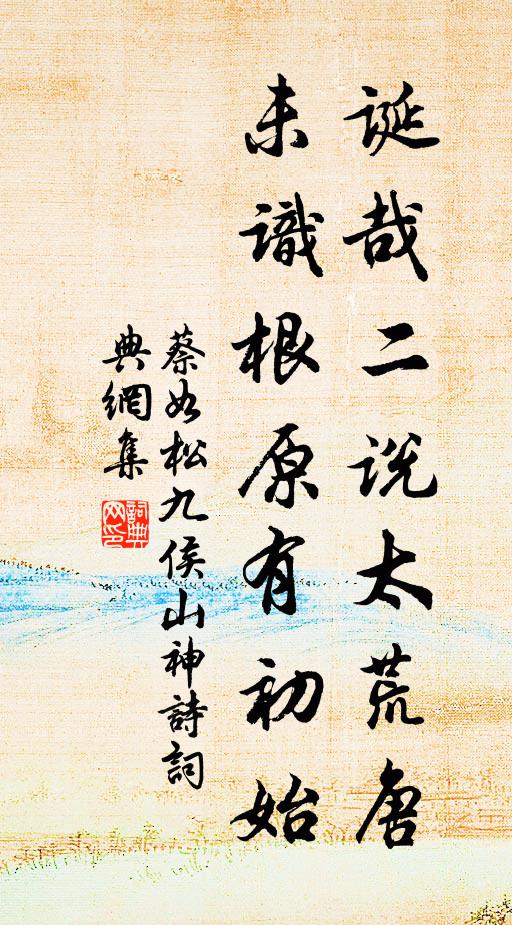 誕哉二说太荒唐
未識根原有初始
蔡如松九侯山神詩詞
典網集
詞典
网印